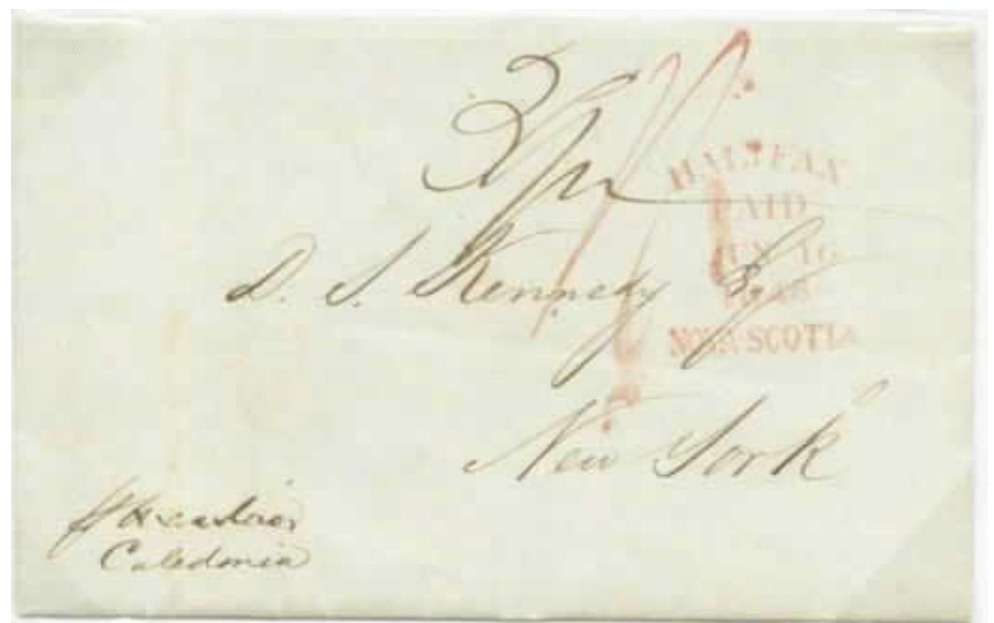 HALIFAX
PAID
JUN 16
NOVA SCOTIA
D. S. Kennedy Esq
New York
Caledonia